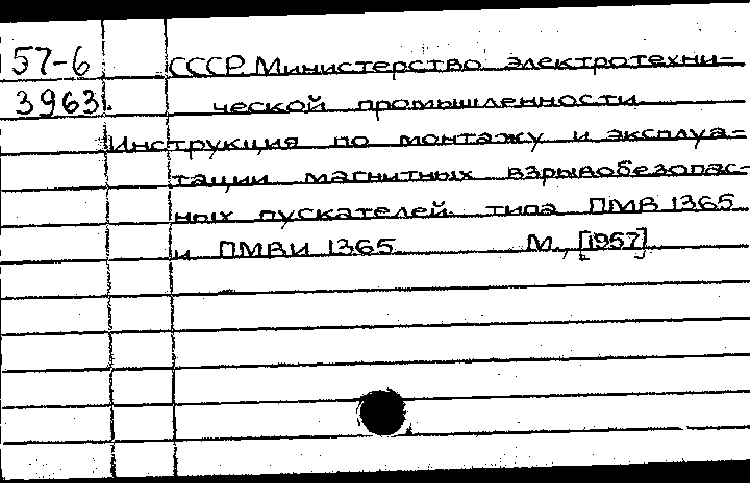 57-6 СССР. Министерство электротехни-
3963. ческой промышленности.
Инструкция по монтажу и эксплуа-
тации магнитных взрывобезопас-
ных пускателей типа ПМВ 1365
и ПМВИ 1365 М., [1957]